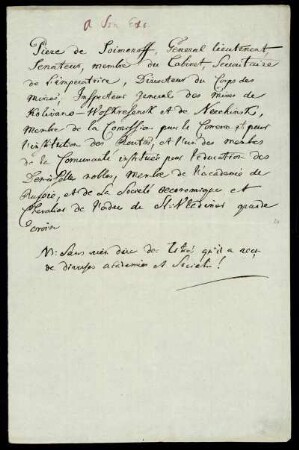 a Son Exc.
Piere de Soimonoff, General lieutenant
Senateur, membre du Cabinet Secretaire
de l'imperatrice, Directeur du Corps des
mines, Inspecteur General des mines de
Kolivano-Woskresensk et de Nerchinsk,
membre de la Comission pour le Comerce & pour
l'institution des Routes, et l'un des membres
de la Comunauté instituée pour l'education des
Demoiselles nobles, membre de l'academie de
Russie, et de la Societé oeconomique et
Chevalier de l'ordre de St. Vladimir grande
Croix
N: Sans rien dire des Titres qu'il a reçu
de diverses academies et Societé!